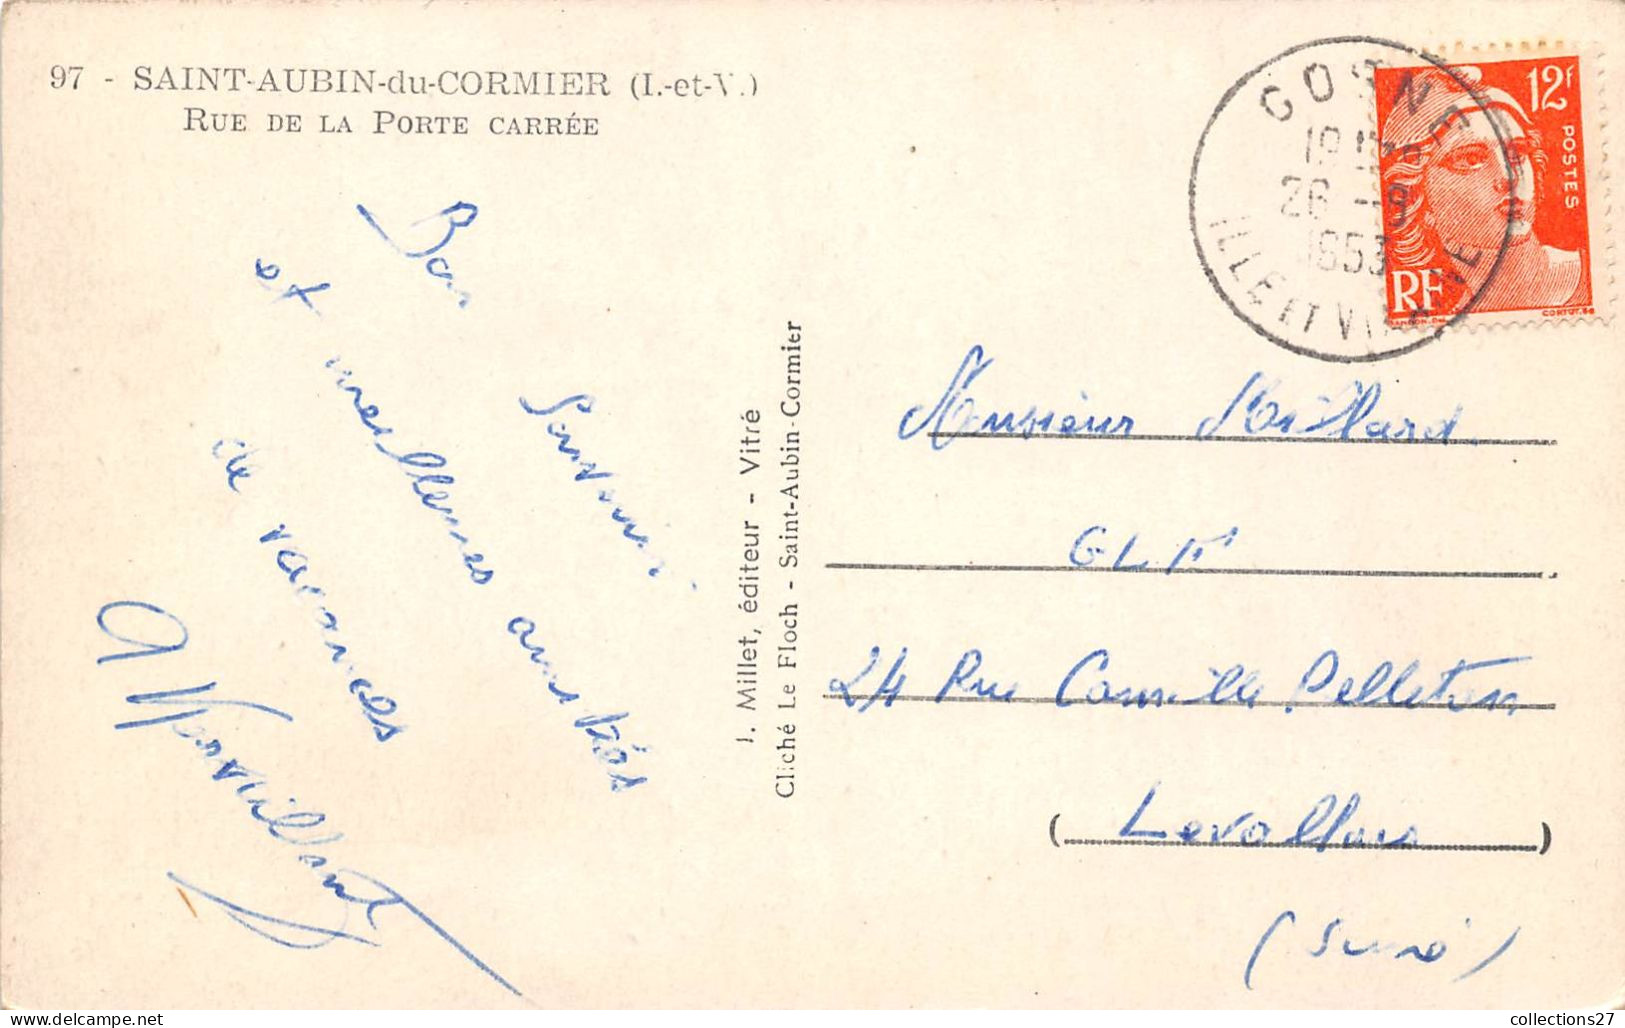 97 - SAINT-AUBIN-du-CORMIER (I.-et-V.)
RUE DE LA PORTE CARRÉE
Bon Souvenir
et meilleures amitiés
de vacances
J. Millet, éditeur - Vitré
Cliché Le Floch - Saint-Aubin-Cormier
GOSNE
26 -8
1953
ILLE ET VILAINE
12F
POSTES
RF
GANDON.DEL
CORTOT.SC
Monsieur Maillard
GLF
24 Rue Camille Pelletan
(Levallois)
(Seine)
collections27